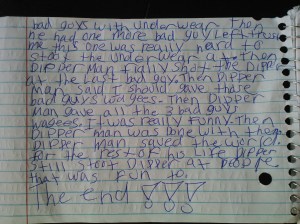 bad guys with underwear then
he had one more bad guy left trust
me this one was really heard to
stoot the underwear at then
Dipper man finlly shot the Dipper
at the last bad guy. then Dipper
man said I should save there
bad guys wagees. Then Dipper
man gave all the 3 bad guys
wagees. I was really funny. Then
Dipper man was done with them
Dipper man saved the world.
for the rest of his life Dipper
still stot Dipper at people
that was fun to.
The end !!!